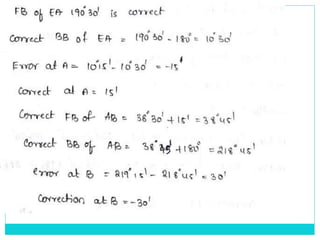 FB of EA 190°30' is correct
Correct BB of EA = 190°30' - 180° = 10°30'
Error at A = 10°15' - 10°30' = -15'
Correct at A = 15'
Correct FB of AB = 38°30' + 15' = 38°45'
Correct BB of AB = 38°45' + 180° = 218°45'
error at B = 219°15' - 218°45' = 30'
Correction at B = -30'